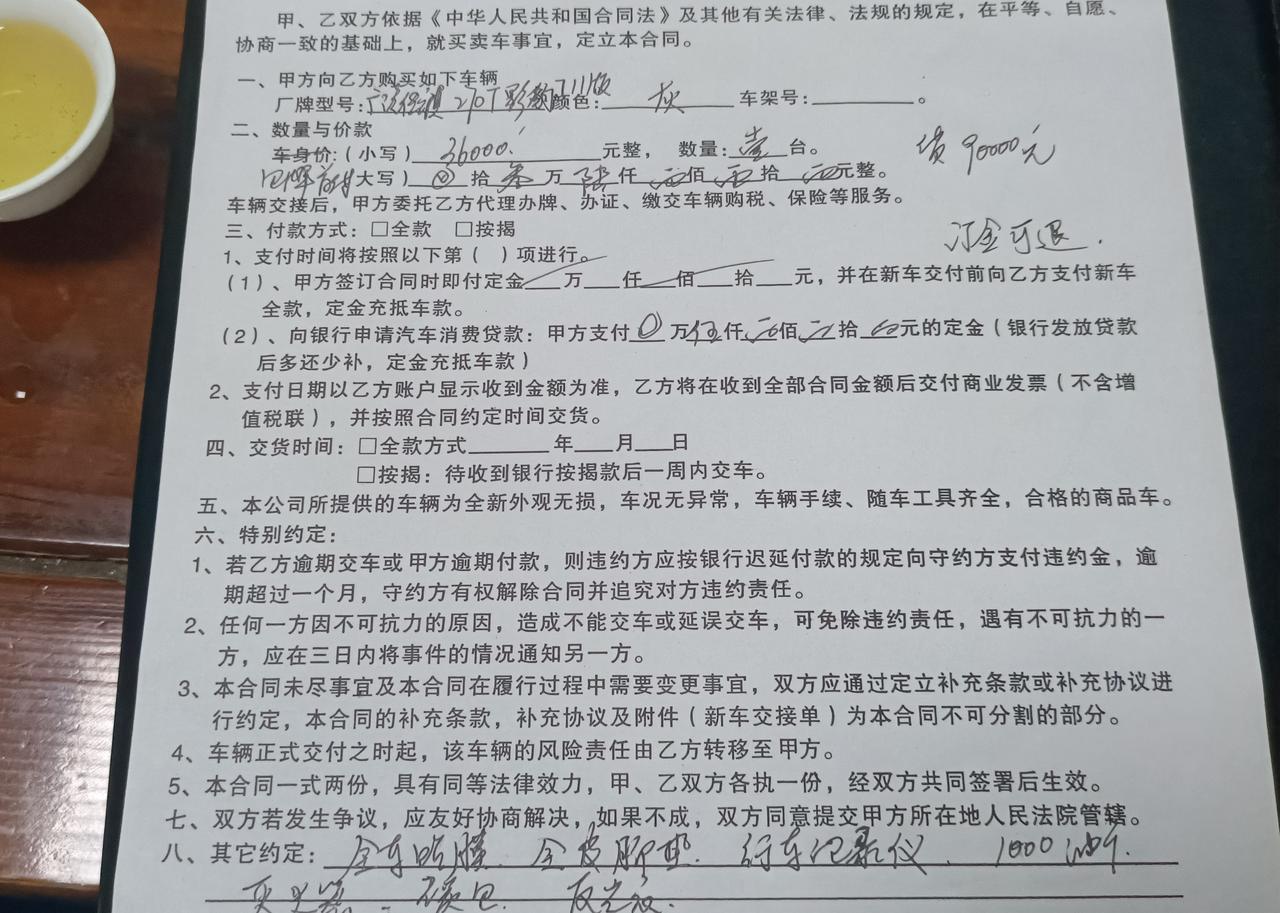 甲、乙双方依据《中华人民共和国合同法》及其他有关法律、法规的规定，在平等、自愿、
协商一致的基础上，就买卖车事宜，定立本合同。
一、甲方向乙方购买如下车辆
厂牌型号：270T 颜色：灰 车架号：。
二、数量与价款
车身价：（小写）36000. 元整， 数量：壹 台。
大写）⊗ 拾 叁 万 陆 仟 百 拾 元整。
贷 90000元
车辆交接后，甲方委托乙方代理办牌、办证、缴交车辆购税、保险等服务。
三、付款方式：□全款 □按揭
订金可退.
1、支付时间将按照以下第（ ）项进行。
（1）、甲方签订合同时即付定金 万 仟 佰 拾 元，并在新车交付前向乙方支付新车
全款，定金充抵车款。
（2）、向银行申请汽车消费贷款：甲方支付 0 万 伍 仟 佰 拾 元的定金（银行发放贷款
后多还少补，定金充抵车款）
2、支付日期以乙方账户显示收到金额为准，乙方将在收到全部合同金额后交付商业发票（不含增
值税联），并按照合同约定时间交货。
四、交货时间：□全款方式 年 月 日
□按揭：待收到银行按揭款后一周内交车。
五、本公司所提供的车辆为全新外观无损，车况无异常，车辆手续、随车工具齐全，合格的商品车。
六、特别约定：
1、若乙方逾期交车或甲方逾期付款，则违约方应按银行迟延付款的规定向守约方支付违约金，逾
期超过一个月，守约方有权解除合同并追究对方违约责任。
2、任何一方因不可抗力的原因，造成不能交车或延误交车，可免除违约责任，遇有不可抗力的一
方，应在三日内将事件的情况通知另一方。
3、本合同未尽事宜及本合同在履行过程中需要变更事宜，双方应通过定立补充条款或补充协议进
行约定，本合同的补充条款，补充协议及附件（新车交接单）为本合同不可分割的部分。
4、车辆正式交付之时起，该车辆的风险责任由乙方转移至甲方。
5、本合同一式两份，具有同等法律效力，甲、乙双方各执一份，经双方共同签署后生效。
七、双方若发生争议，应友好协商解决，如果不成，双方同意提交甲方所在地人民法院管辖。
八、其它约定：全车贴膜. 全皮脚垫. 行车记录仪. 1000油卡.
灭火器. 反光衣.